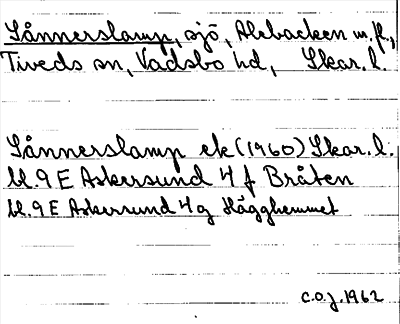 Sånnerslamp, sjö, Alebacken m.fl.,
Tiveds sn, Vadsbo hd, Skar. l.
Sånnerslamp ek (1960) Skar. l.
bl. 9 E Askersund 4 f Bråten
bl. 9 E Askersund 4 g Hägghemmet
C.O.J. 1962